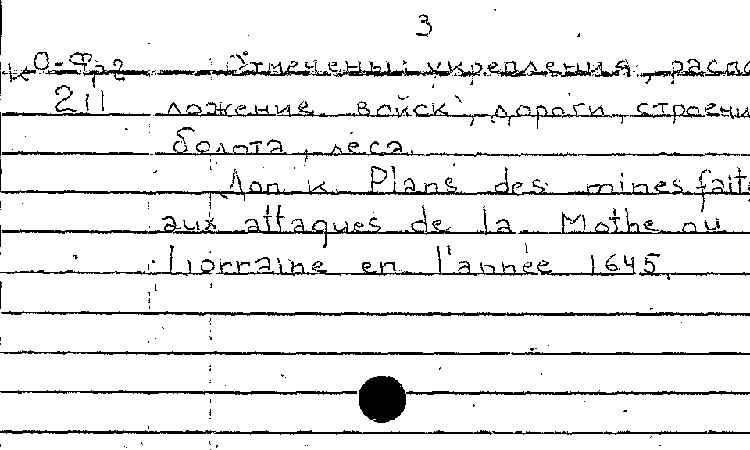 3
к О-Фр2 Отмечены: укрепления, распо
2/1 ложение войск, дороги, строени
болота, леса.
Доп. к. Plans des mines faits
aux attaques de la Mothe ou
Lorraine en l'année 1645.